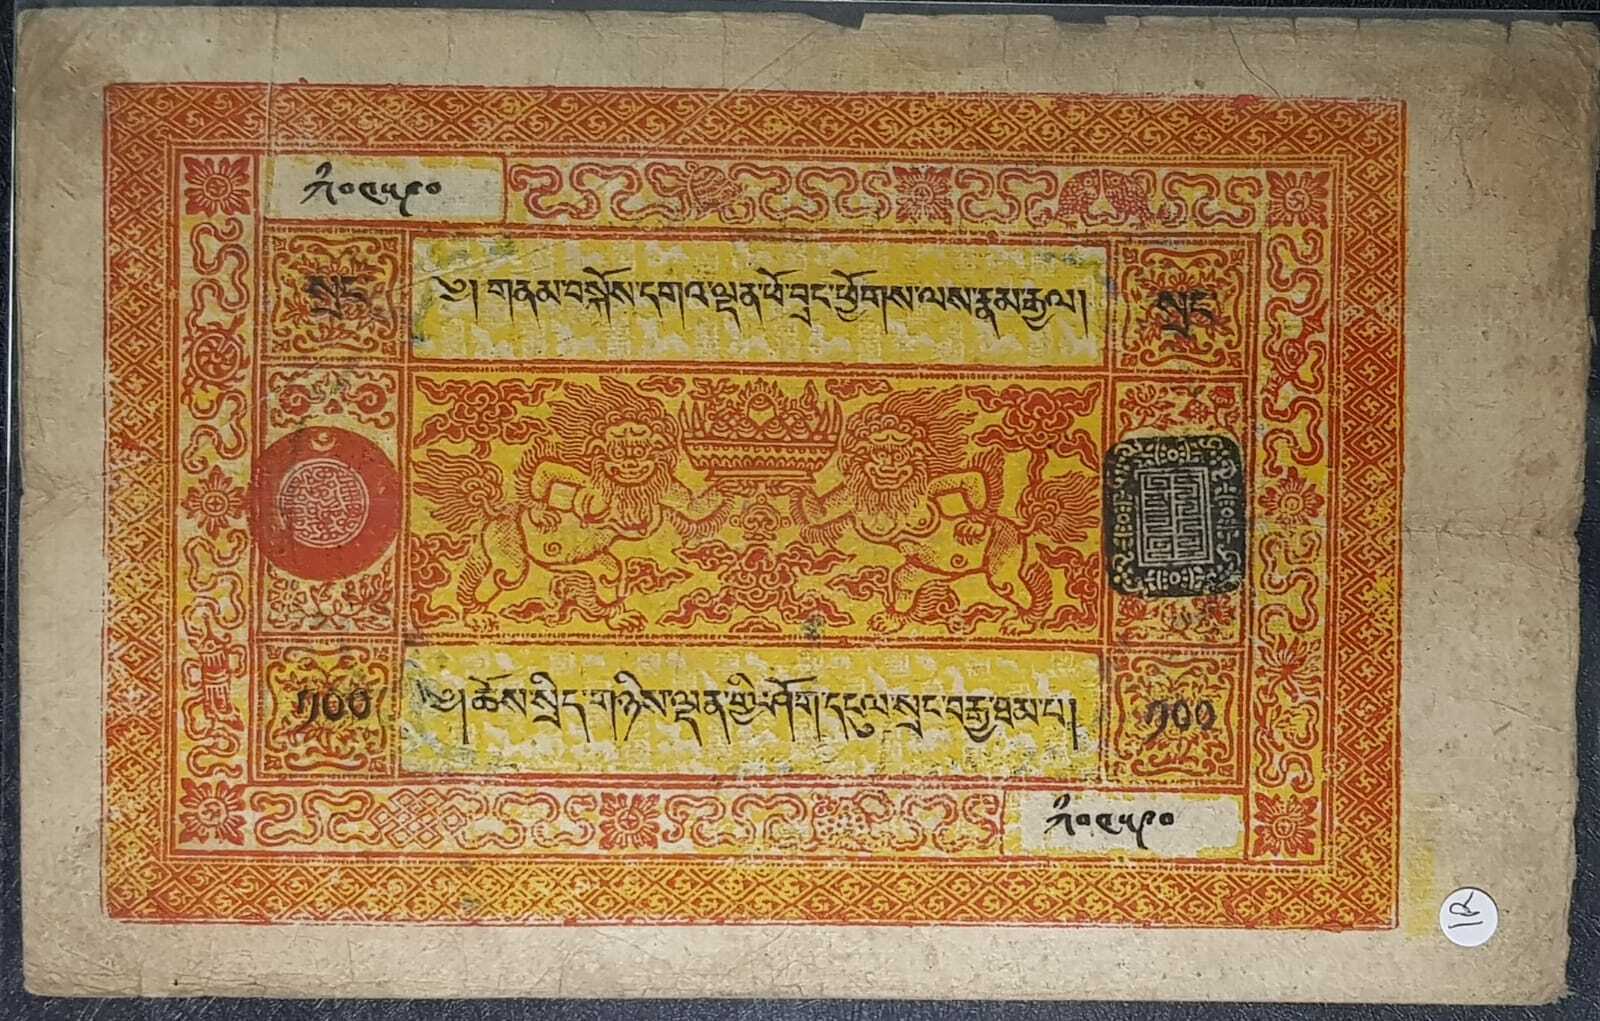 སྲང
༄། གནམ་བསྐོས་དགའ་ལྡན་ཕོ་བྲང་ཕྱོགས་ལས་རྣམ་རྒྱལ།
སྲང
༡༠༠
༄། ཆོས་སྲིད་གཉིས་ལྡན་གྱི་ཤོག་དངུལ་སྲང་བརྒྱ་ཐམ་པ།
༡༠༠